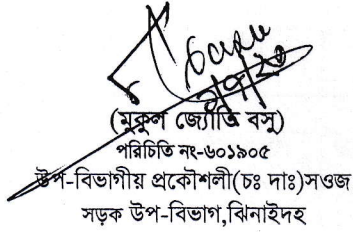 (মুকুল জ্যোতি বসু)
পরিচিতি নং-৬০১৯০৫
উপ-বিভাগীয় প্রকৌশলী(চঃ দাঃ)সওজ
সড়ক উপ-বিভাগ,ঝিনাইদহ